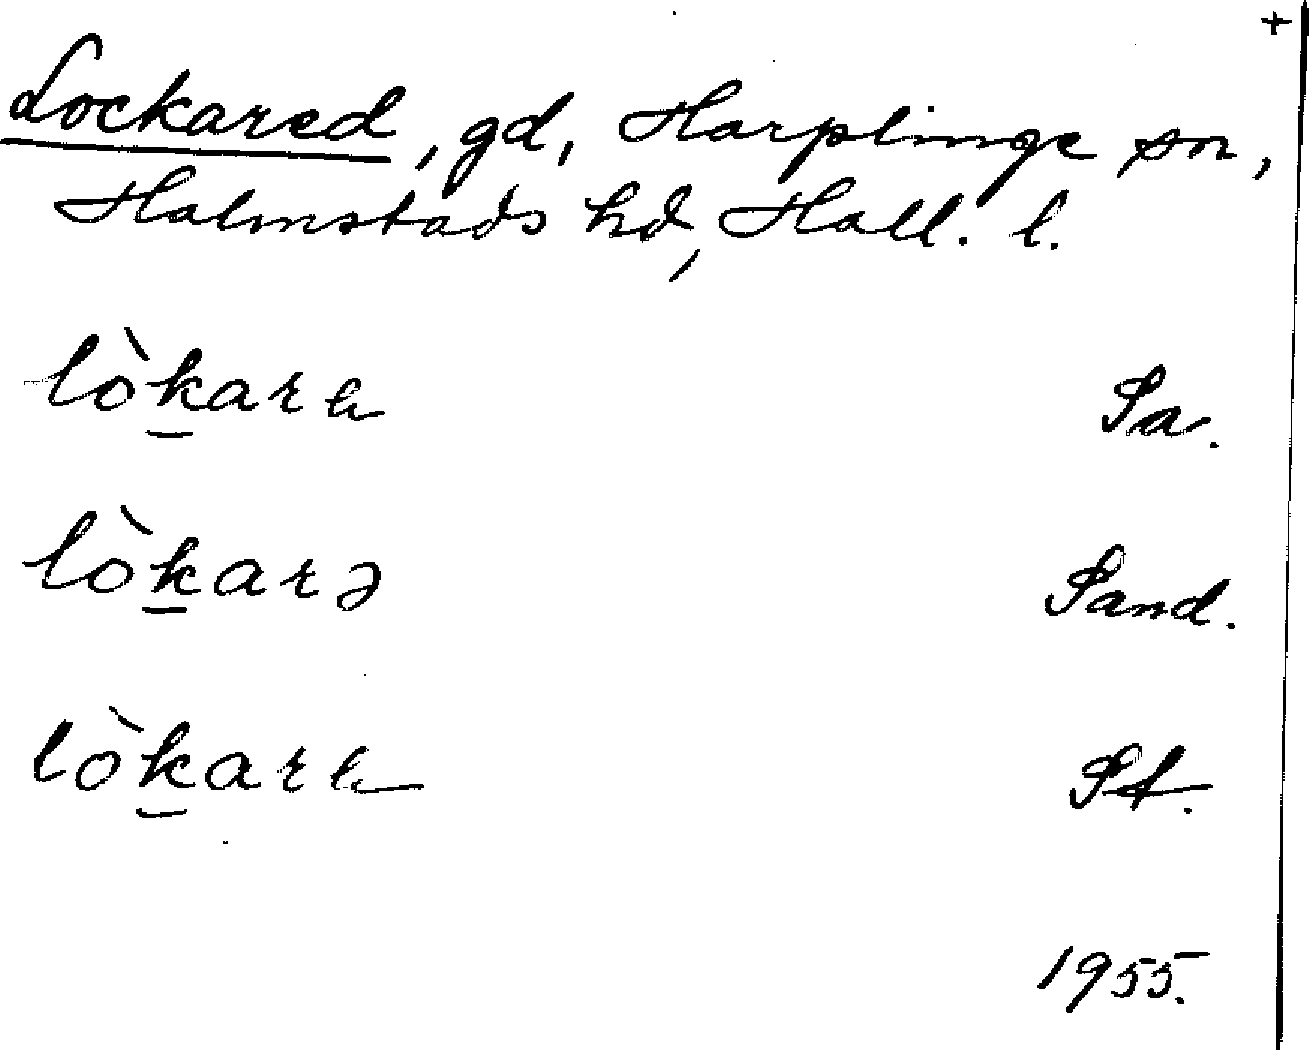 +
Lockared, gd, Harplinge sn,
Halmstads hd, Hall. l.
lòk̲arɐ Sa.
lòk̲arə Sand.
lòk̲arɐ St.
1955.